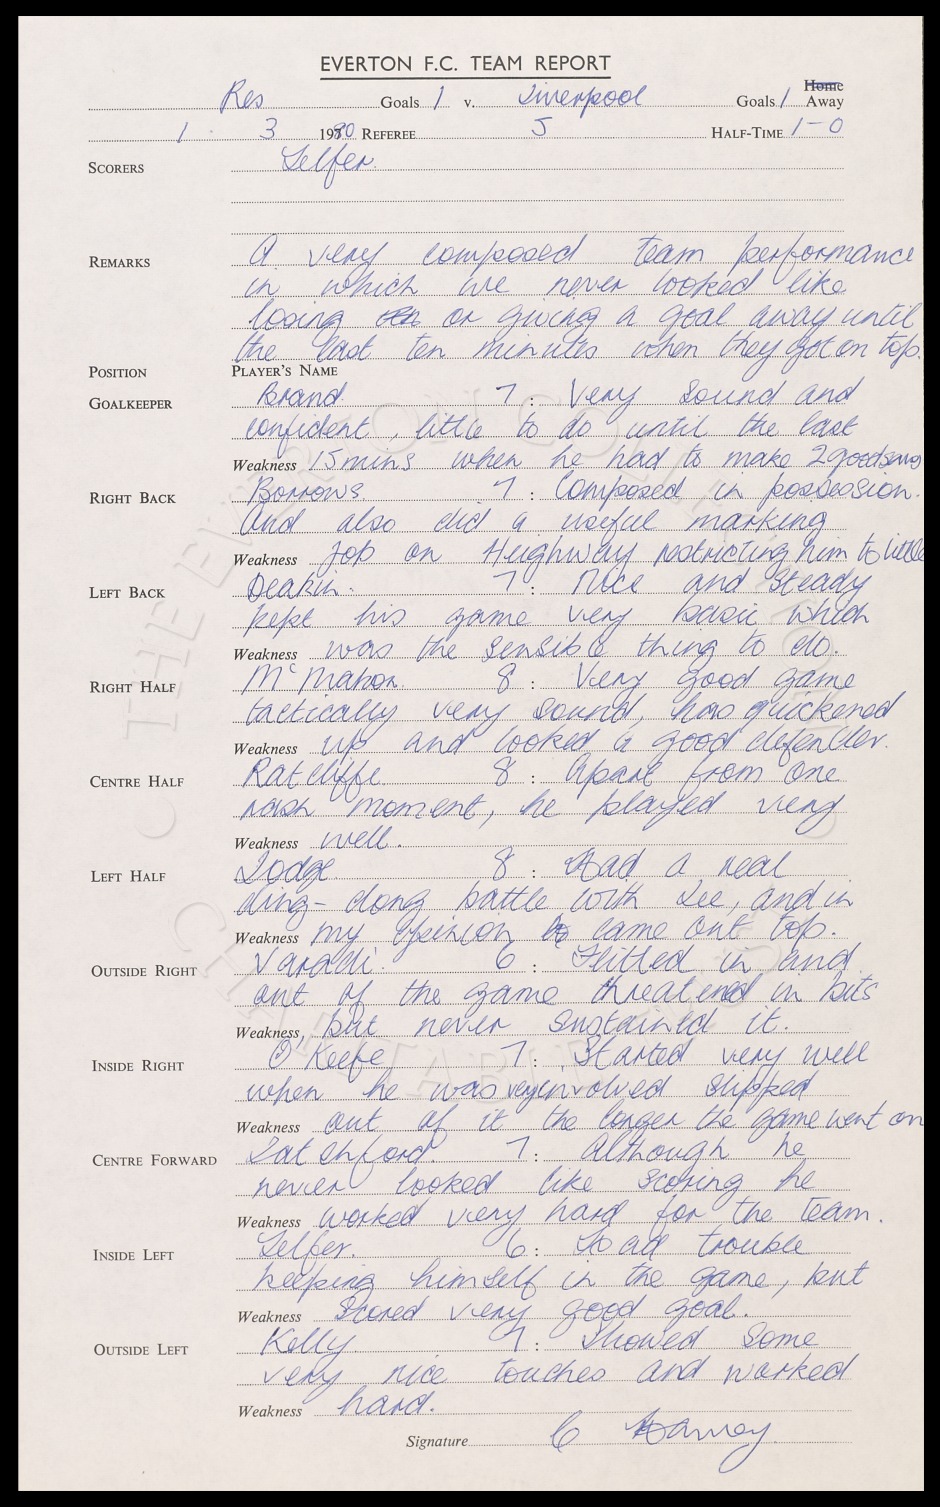 EVERTON F.C. TEAM REPORT
Home
Res Goals 1 v. Liverpool Goals 1 Away
1 . 3 1980 REFEREE 5 HALF-TIME 1-0
SCORERS Telfer.
REMARKS A very composed team performance
in which we never looked like
losing or giving a goal away until
the last ten minutes when they got on top.
POSITION PLAYER'S NAME
GOALKEEPER Brand. 7 : Very sound and
confident, little to do until the last
Weakness 15 mins when he had to make 2 good saves
RIGHT BACK Borrows. 7 : Composed in possession.
And also did a useful marking
Weakness job on Heighway restricting him to little
LEFT BACK Deakin. 7 : Nice and Steady
kept his game very basic which
Weakness was the sensible thing to do.
RIGHT HALF McMahon. 8 : Very good game
tactically very sound, has quickened
Weakness up and looked a good defender.
CENTRE HALF Ratcliffe 8 : Apart from one
rash moment, he played very
Weakness well.
LEFT HALF Dodge. 8 : Had a real
ding-dong battle with Lee, and in
Weakness my opinion came out top.
OUTSIDE RIGHT Varadi. 6 : Flitted in and
out of the game threatened in bits
Weakness, but never sustained it.
INSIDE RIGHT O'Keefe 7 : Started very well
when he was very involved slipped
Weakness out of it the longer the game went on
CENTRE FORWARD Latchford. 7 : Although he
never looked like scoring he
Weakness worked very hard for the team.
INSIDE LEFT Telfer. 6 : Had trouble
keeping himself in the game, but
Weakness Scored very good goal.
OUTSIDE LEFT Kelly 7 : Showed some
very nice touches and worked
Weakness hard.
Signature C Harvey